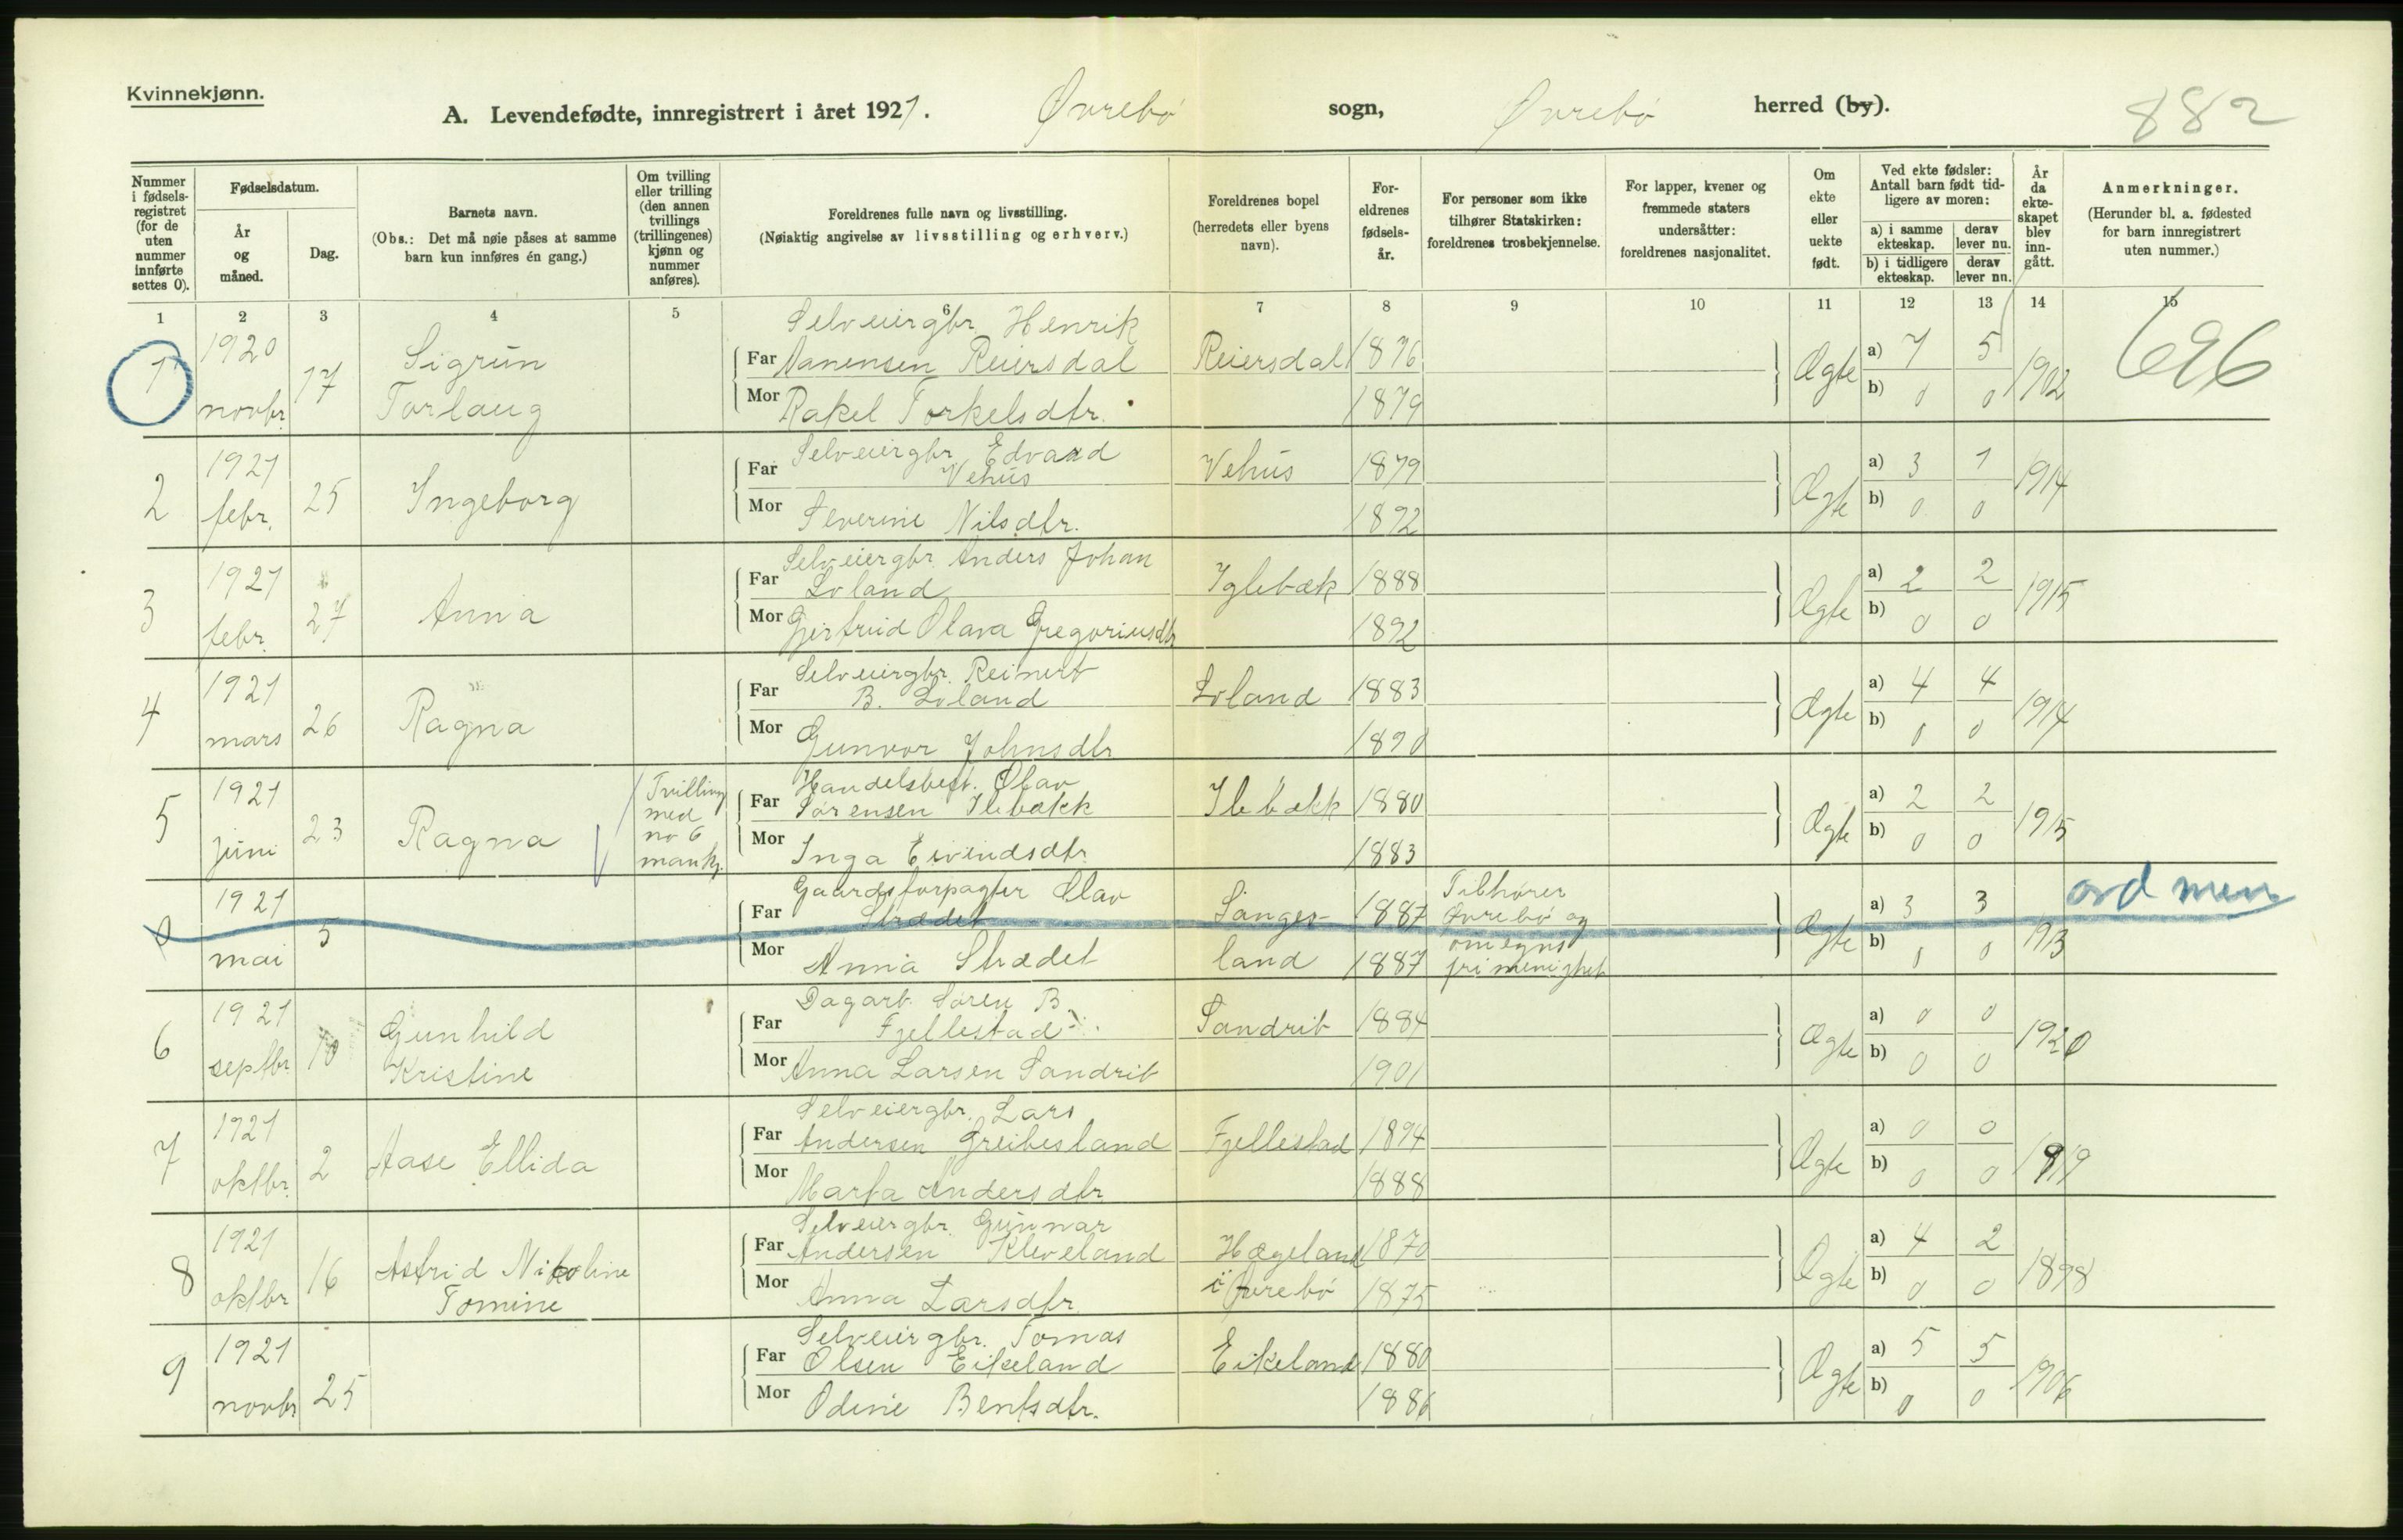 Kvinnekjønn.
A. Levendefødte, innregistrert i året 1921. Øvrebø sogn, Øvrebø herred (by).
882
Nummer i fødsels-registret (for de uten nummer innførte settes 0).
Fødselsdatum.
År og måned.
Dag.
Barnets navn.
(Obs.: Det må nøie påses at samme barn kun innføres én gang.)
Om tvilling eller trilling (den annen tvillings (trillingenes) kjønn og nummer anføres).
Foreldrenes fulle navn og livsstilling.
(Nøiaktig angivelse av livsstilling og erhverv.)
Foreldrenes bopel (herredets eller byens navn).
For-eldrenes fødsels-år.
For personer som ikke tilhører Statskirken: foreldrenes trosbekjennelse.
For lapper, kvener og fremmede staters undersåtter: foreldrenes nasjonalitet.
Om ekte eller uekte født.
Ved ekte fødsler: Antall barn født tid-ligere av moren:
a) i samme ekteskap.
derav lever nu.
b) i tidligere ekteskap.
derav lever nu.
År da ekte-skapet blev inn-gått.
Anmerkninger.
(Herunder bl. a. fødested for barn innregistrert uten nummer.)
1 2 3 4 5 6 7 8 9 10 11 12 13 14 15
1 1920 novbr. 17 Sigrun Torlaug
Selveiergbr. Henrik
Far Aanensen Reiersdal Reiersdal 1876
Mor Rakel Torkelsdtr. 1879
Ægte a) 7 5 b) 0 0 1902 696
2 1921 febr. 25 Ingeborg
Selveiergbr. Edvard
Far Vehus Vehus 1879
Mor Severine Nilsdtr. 1892
Ægte a) 3 1 b) 0 0 1914
3 1921 febr. 27 Anna
Selveiergbr. Anders Johan
Far Loland Iglebæk 1888
Mor Gjertrud Olava Gregoriusdtr 1892
Ægte a) 2 2 b) 0 0 1915
4 1921 mars 26 Ragna
Selveiergbr. Reinert
Far B. Loland Loland 1883
Mor Gunvor Johnsdtr 1890
Ægte a) 4 4 b) 0 0 1914
5 1921 juni 23 Ragna Tvilling med no 6 mankj.
Handelsbest. Olav
Far Sørensen Ilebækk Ilebækk 1880
Mor Inga Eivindsdtr. 1883
Ægte a) 2 2 b) 0 0 1915
0 1921 mai 5
Gaardsforpagter Olav
Far Strædet Sanges- 1887
Mor Anna Strædet land 1887
Tilhører Øvrebø og omegns frimenighet
Ægte a) 3 3 b) 0 0 1913
6 1921 septbr. 10 Gunhild Kristine
Dagarb. Søren B.
Far Fjellestad Sandrib 1884
Mor Anna Larsen Sandrib 1901
Ægte a) 0 0 b) 0 0 1920
7 1921 oktbr. 2 Aase Ellida
Selveiergbr. Lars
Far Andersen Greibesland Fjellestad 1894
Mor Marta Andersdtr 1888
Ægte a) 0 0 b) 0 0 1919
8 1921 oktbr 16 Astrid Nikoline Tomine
Selveiergbr. Gunnar
Far Andersen Kleveland Hægeland 1870
Mor Anna Larsdtr. i Øvrebø 1875
Ægte a) 4 2 b) 0 0 1898
9 1921 novbr 25
Selveiergbr. Tomas
Far Olsen Eikeland Eikeland 1880
Mor Odine Bentsdtr. 1886
Ægte a) 5 5 b) 0 0 1906